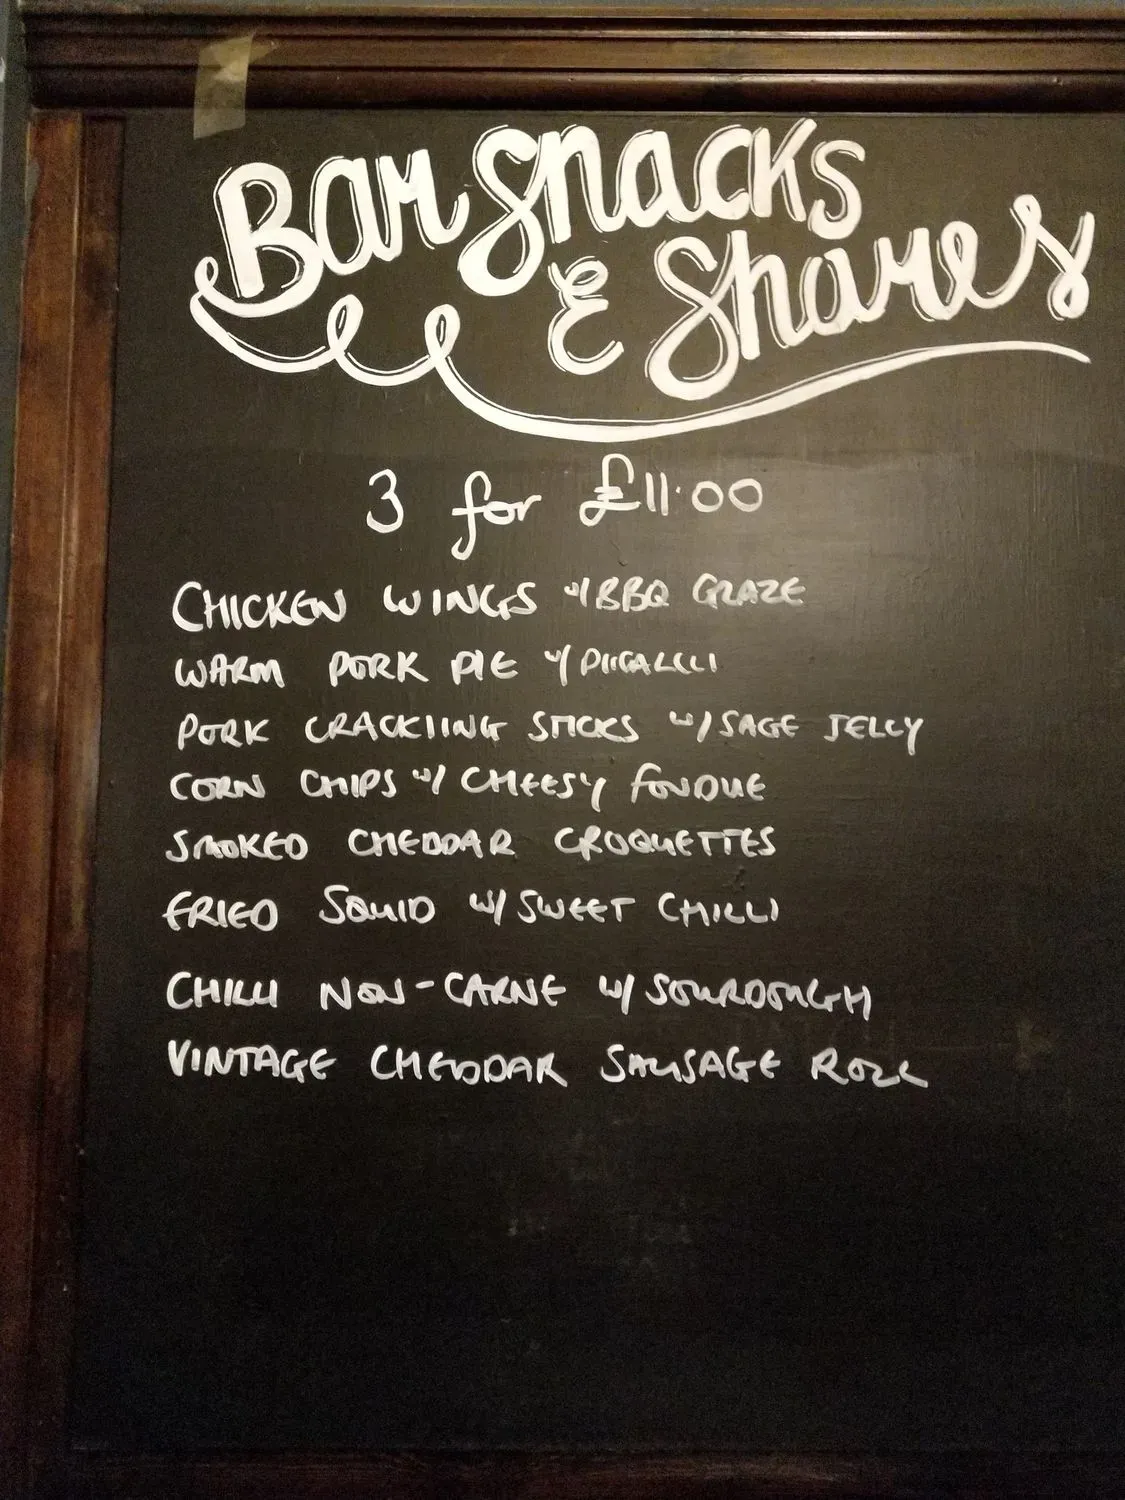 Bar Snacks
& Shares
3 for £11.00
CHICKEN WINGS w/ BBQ GLAZE
WARM PORK PIE w/ PICCALLLI
PORK CRACKLING STICKS w/ SAGE JELLY
CORN CHIPS w/ CHEESY FONDUE
SMOKED CHEDDAR CROQUETTES
FRIED SQUID w/ SWEET CHILLI
CHILLI NON-CARNE w/ SOURDOUGH
VINTAGE CHEDDAR SAUSAGE ROLL